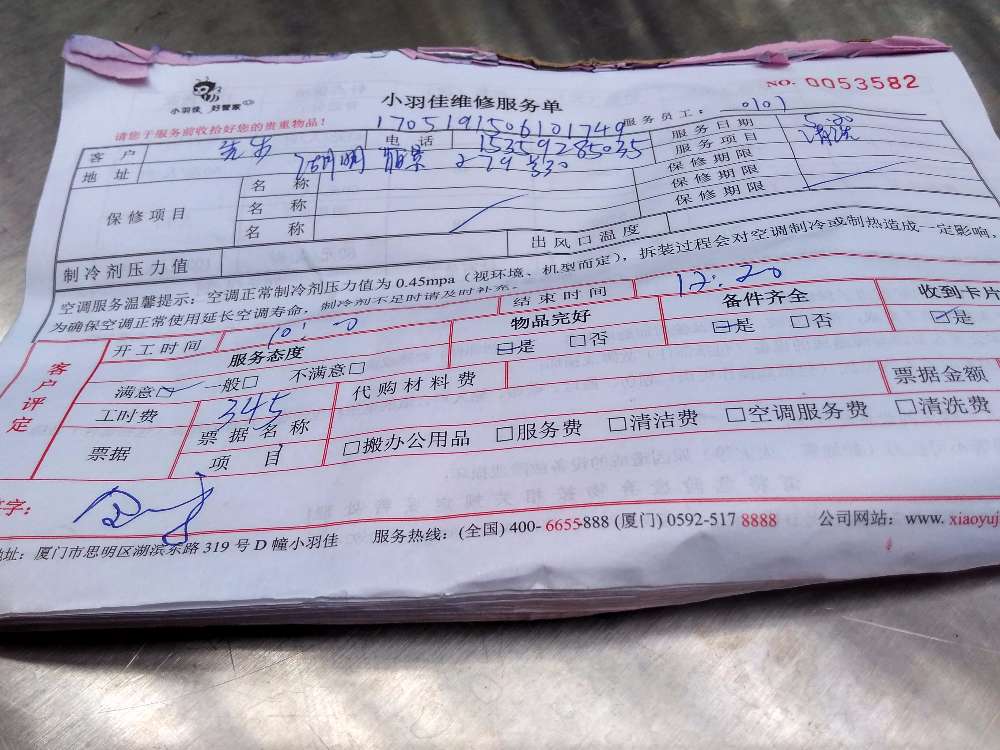 小羽佳 好管家
小羽佳维修服务单
NO. 0053582
请您于服务前收拾好您的贵重物品！
1705191506101749
服务员工： 0101
客 户
电 话 15359285035
服务日期
地 址
279 330
服务项目 清洗
保修项目
名 称
保修期限
名 称
保修期限
名 称
保修期限
制冷剂压力值
出风口温度
空调服务温馨提示：空调正常制冷剂压力值为 0.45mpa（视环境、机型而定），拆装过程会对空调制冷或制热造成一定影响，
为确保空调正常使用延长空调寿命，制冷剂不足时请及时补充。
开工时间
结束时间 12:20
客户评定
服务态度
物品完好
备件齐全
收到卡片
满意☑ 一般□ 不满意□
☑是 □否
☑是 □否
☑是
工时费 345
代购材料费
票据金额
票据
票据名称
项 目
□搬办公用品 □服务费 □清洁费 □空调服务费 □清洗费
字：
地址：厦门市思明区湖滨东路 319 号 D 幢小羽佳 服务热线：(全国) 400- 6655-888 (厦门) 0592-517 8888 公司网站：www. xiaoyuj